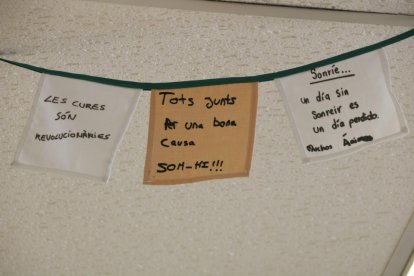 LES CURES
SÓN
REVOLUCIONÀRIES
Tots junts
Per una bona
causa
SOM-HI!!!
Sonríe...
un día sin
Sonreir es
un día perdido.
Muchos Ánimos